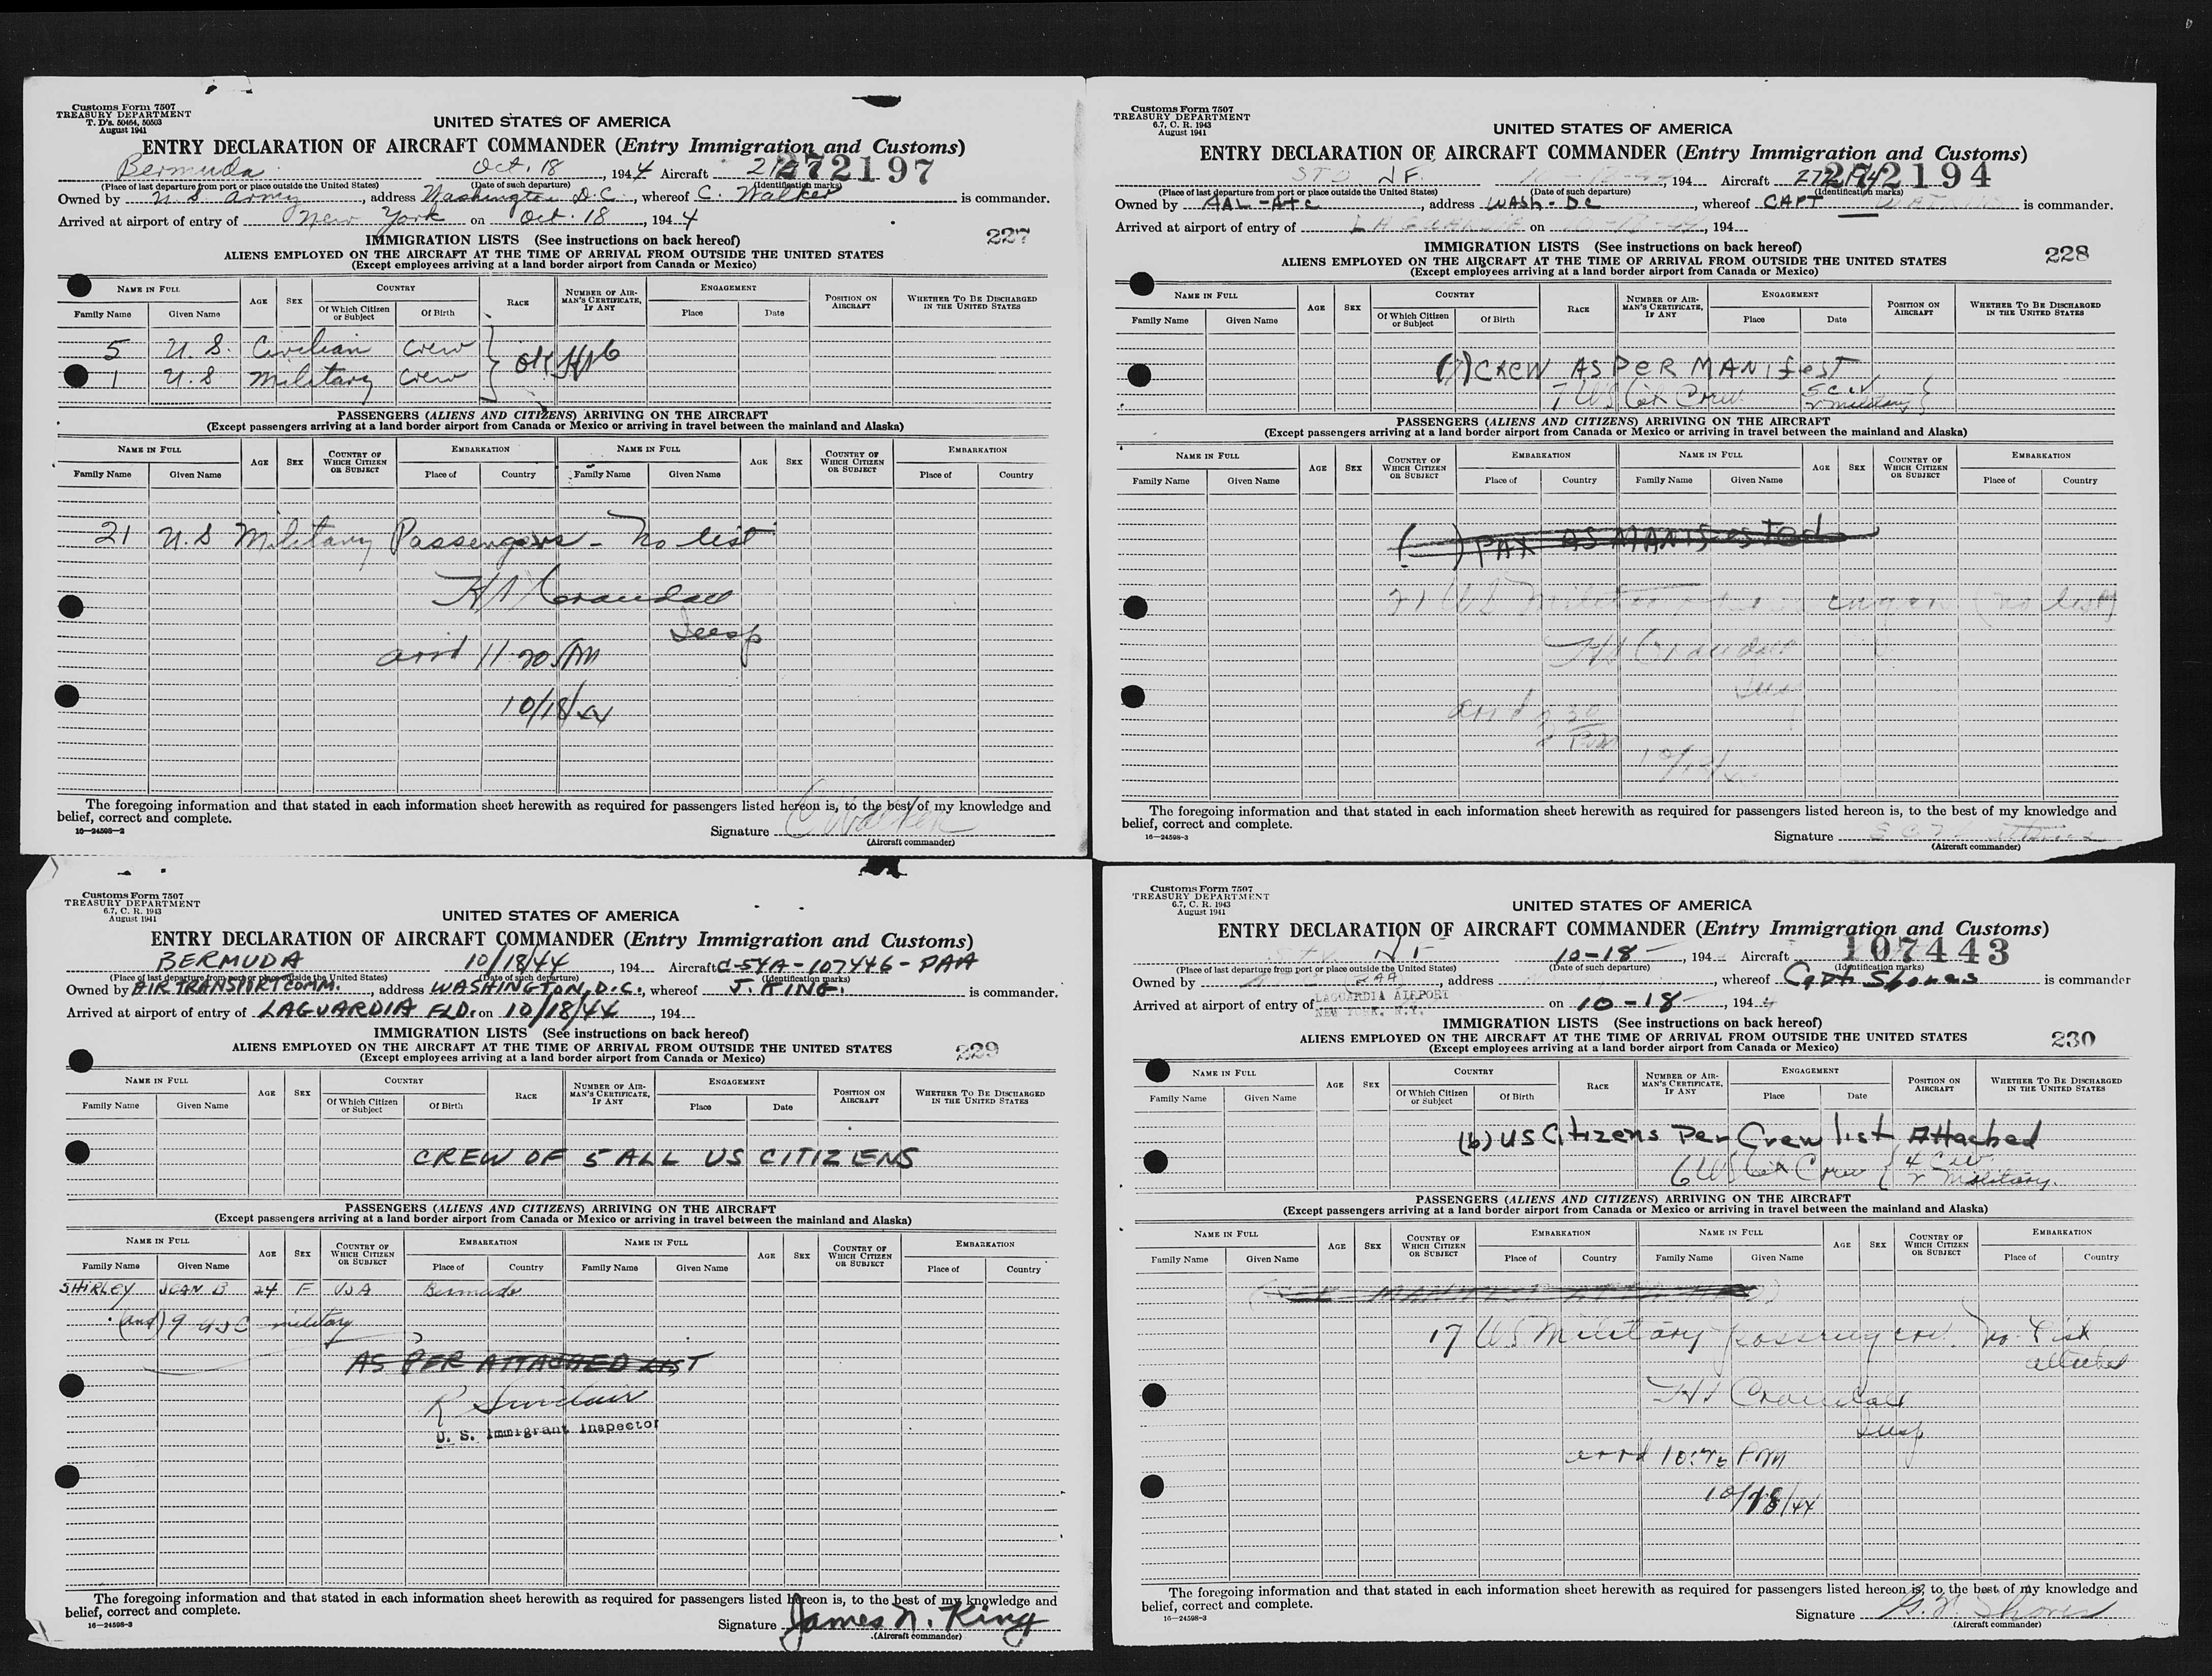 Customs Form 7507
TREASURY DEPARTMENT
T. D's. 50464, 50503
August 1941
UNITED STATES OF AMERICA
ENTRY DECLARATION OF AIRCRAFT COMMANDER (Entry Immigration and Customs)
Bermuda Oct. 18, 1944 Aircraft 272197
(Place of last departure from port or place outside the United States) (Date of such departure) (Identification marks)
Owned by U.S. Army, address Washington D.C., whereof C. Walker is commander.
Arrived at airport of entry of New York on Oct. 18, 1944
227
IMMIGRATION LISTS (See instructions on back hereof)
ALIENS EMPLOYED ON THE AIRCRAFT AT THE TIME OF ARRIVAL FROM OUTSIDE THE UNITED STATES
(Except employees arriving at a land border airport from Canada or Mexico)
NAME IN FULL AGE SEX COUNTRY RACE NUMBER OF AIRMAN'S CERTIFICATE, IF ANY ENGAGEMENT POSITION ON AIRCRAFT WHETHER TO BE DISCHARGED IN THE UNITED STATES
Family Name Given Name Of Which Citizen or Subject Of Birth Place Date
5 U.S. Civilian crew
1 U.S. Military crew
OK
PASSENGERS (ALIENS AND CITIZENS) ARRIVING ON THE AIRCRAFT
(Except passengers arriving at a land border airport from Canada or Mexico or arriving in travel between the mainland and Alaska)
NAME IN FULL AGE SEX COUNTRY OF WHICH CITIZEN OR SUBJECT EMBARKATION NAME IN FULL AGE SEX COUNTRY OF WHICH CITIZEN OR SUBJECT EMBARKATION
Family Name Given Name Place of Country Family Name Given Name Place of Country
21 U.S Military Passengers - No list
Crandall
Insp
arrd 11:20 AM
10/18/44
The foregoing information and that stated in each information sheet herewith as required for passengers listed hereon is, to the best of my knowledge and
belief, correct and complete.
16—24598-2
Signature C Walker
(Aircraft commander)
Customs Form 7507
TREASURY DEPARTMENT
6.7, C. R. 1943
August 1941
UNITED STATES OF AMERICA
ENTRY DECLARATION OF AIRCRAFT COMMANDER (Entry Immigration and Customs)
, 194 Aircraft 272194
(Place of last departure from port or place outside the United States) (Date of such departure) (Identification marks)
Owned by AAL-ATC, address WASH-DC, whereof CAPT is commander.
Arrived at airport of entry of LA GUARDIA on , 194
228
IMMIGRATION LISTS (See instructions on back hereof)
ALIENS EMPLOYED ON THE AIRCRAFT AT THE TIME OF ARRIVAL FROM OUTSIDE THE UNITED STATES
(Except employees arriving at a land border airport from Canada or Mexico)
NAME IN FULL AGE SEX COUNTRY RACE NUMBER OF AIRMAN'S CERTIFICATE, IF ANY ENGAGEMENT POSITION ON AIRCRAFT WHETHER TO BE DISCHARGED IN THE UNITED STATES
Family Name Given Name Of Which Citizen or Subject Of Birth Place Date
(7) CREW AS PER MANIfesT
7 US Cit Crew 5 Civ
2 military
PASSENGERS (ALIENS AND CITIZENS) ARRIVING ON THE AIRCRAFT
(Except passengers arriving at a land border airport from Canada or Mexico or arriving in travel between the mainland and Alaska)
NAME IN FULL AGE SEX COUNTRY OF WHICH CITIZEN OR SUBJECT EMBARKATION NAME IN FULL AGE SEX COUNTRY OF WHICH CITIZEN OR SUBJECT EMBARKATION
Family Name Given Name Place of Country Family Name Given Name Place of Country
( ) PAX AS MANIFESTED
21 US Military Passengers (no list)
Crandall
Insp
arrd
The foregoing information and that stated in each information sheet herewith as required for passengers listed hereon is, to the best of my knowledge and
belief, correct and complete.
16—24598-3
Signature
(Aircraft commander)
Customs Form 7507
TREASURY DEPARTMENT
6.7, C. R. 1943
August 1941
UNITED STATES OF AMERICA
ENTRY DECLARATION OF AIRCRAFT COMMANDER (Entry Immigration and Customs)
BERMUDA 10/18/44, 194 Aircraft C-54A-107446-PAA
(Place of last departure from port or place outside the United States) (Date of such departure) (Identification marks)
Owned by AIR TRANSPORT COMM., address WASHINGTON, D.C., whereof J. KING. is commander.
Arrived at airport of entry of LAGUARDIA FLD. on 10/18/44, 194
229
IMMIGRATION LISTS (See instructions on back hereof)
ALIENS EMPLOYED ON THE AIRCRAFT AT THE TIME OF ARRIVAL FROM OUTSIDE THE UNITED STATES
(Except employees arriving at a land border airport from Canada or Mexico)
NAME IN FULL AGE SEX COUNTRY RACE NUMBER OF AIRMAN'S CERTIFICATE, IF ANY ENGAGEMENT POSITION ON AIRCRAFT WHETHER TO BE DISCHARGED IN THE UNITED STATES
Family Name Given Name Of Which Citizen or Subject Of Birth Place Date
CREW OF 5 ALL US CITIZENS
PASSENGERS (ALIENS AND CITIZENS) ARRIVING ON THE AIRCRAFT
(Except passengers arriving at a land border airport from Canada or Mexico or arriving in travel between the mainland and Alaska)
NAME IN FULL AGE SEX COUNTRY OF WHICH CITIZEN OR SUBJECT EMBARKATION NAME IN FULL AGE SEX COUNTRY OF WHICH CITIZEN OR SUBJECT EMBARKATION
Family Name Given Name Place of Country Family Name Given Name Place of Country
SHIRLEY JEAN B 24 F USA Bermuda
(and) 9 USC military
AS PER ATTACHED LIST
R Sinclair
U. S. Immigrant Inspector
The foregoing information and that stated in each information sheet herewith as required for passengers listed hereon is, to the best of my knowledge and
belief, correct and complete.
16—24598-3
Signature James N. King
(Aircraft commander)
Customs Form 7507
TREASURY DEPARTMENT
6.7, C. R. 1943
August 1941
UNITED STATES OF AMERICA
ENTRY DECLARATION OF AIRCRAFT COMMANDER (Entry Immigration and Customs)
NF 10-18-, 194 Aircraft 107443
(Place of last departure from port or place outside the United States) (Date of such departure) (Identification marks)
Owned by (PAA), address , whereof Capt Shores is commander
Arrived at airport of entry of LAGUARDIA AIRPORT NEW YORK, N.Y. on 10-18-, 1944
230
IMMIGRATION LISTS (See instructions on back hereof)
ALIENS EMPLOYED ON THE AIRCRAFT AT THE TIME OF ARRIVAL FROM OUTSIDE THE UNITED STATES
(Except employees arriving at a land border airport from Canada or Mexico)
NAME IN FULL AGE SEX COUNTRY RACE NUMBER OF AIRMAN'S CERTIFICATE, IF ANY ENGAGEMENT POSITION ON AIRCRAFT WHETHER TO BE DISCHARGED IN THE UNITED STATES
Family Name Given Name Of Which Citizen or Subject Of Birth Place Date
(6) US Citizens Per Crew list Attached
6 US Cit Crew 4 Civ
2 Military.
PASSENGERS (ALIENS AND CITIZENS) ARRIVING ON THE AIRCRAFT
(Except passengers arriving at a land border airport from Canada or Mexico or arriving in travel between the mainland and Alaska)
NAME IN FULL AGE SEX COUNTRY OF WHICH CITIZEN OR SUBJECT EMBARKATION NAME IN FULL AGE SEX COUNTRY OF WHICH CITIZEN OR SUBJECT EMBARKATION
Family Name Given Name Place of Country Family Name Given Name Place of Country
17 US Military passengers. No list
attached
Crandall
Insp
arrd
10/18/44
The foregoing information and that stated in each information sheet herewith as required for passengers listed hereon is, to the best of my knowledge and
belief, correct and complete.
16—24598-3
Signature Shores
(Aircraft commander)